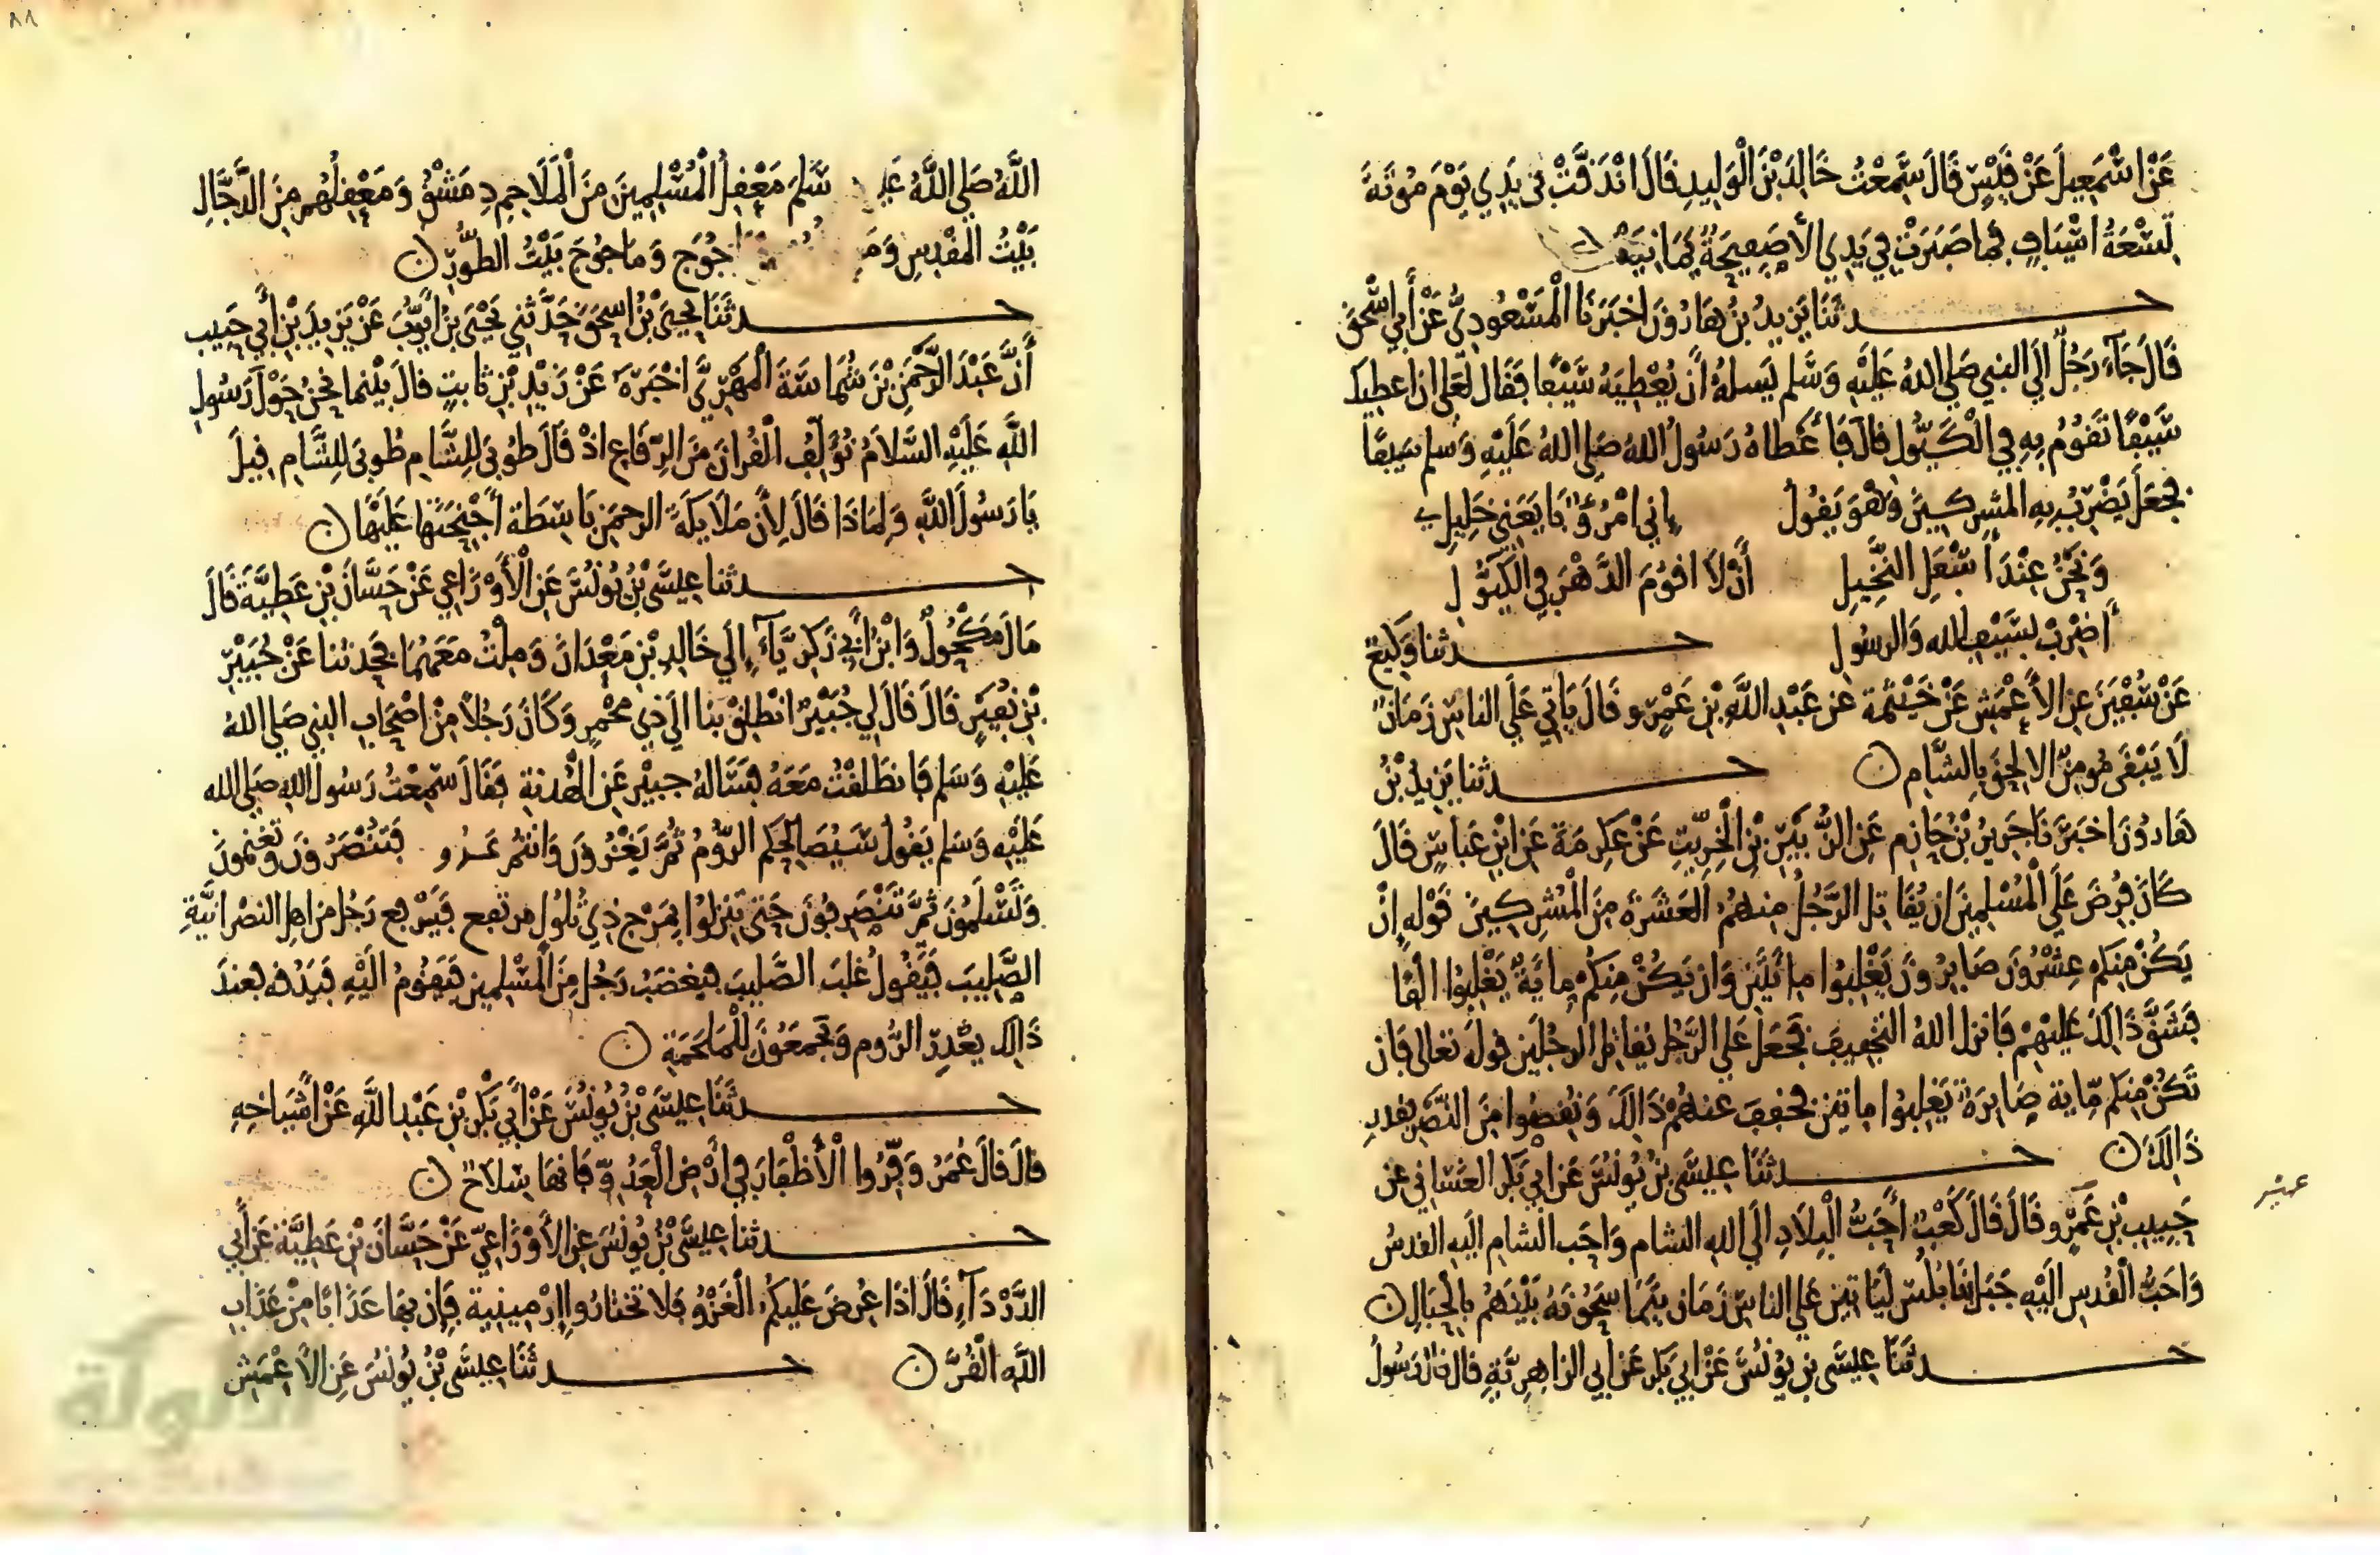 عَنْ اسْمَعِيلَ عَنْ قَيْسٍ قَالَ سَمِعْتُ خَالِدَ بْنَ الْوَلِيدِ قَالَ انْدَقَّتْ فِي يَدِي يَوْمَ مُوتَةَ
تِسْعَةُ اسْيَافٍ فما صَبَرَتْ فِي يَدِي الا صَفِيحَةٌ يَمَانِيَةٌ
حدثَنَا يَزِيدُ بنُ هَارُونَ اخْبَرَنَا الْمَسْعُودِيُّ عَنْ أَبِي اسْحَقَ
قَالَ جَآءَ رَجُلٌ الَى النبي صَلى اللهُ عَلَيْهِ وَسَلم يَسلهُ أَن يُعْطِيَهُ سَيْفًا فَقَال لَعَلى ان اعطيك
سَيْفًا تَقُومُ بِهِ فِي الْكَيُّولِ قَالَ فَأَعْطاهُ رَسُولُ اللهُ صَلى اللهُ عَلَيْهِ وَسَلم سَيفًا
فجعَلَ يَضْرِبُ بِهِ المشرِكِينَ وَهْوَ يَقُولُ إني امْرُؤٌ بَايَعَنِي خَلِيلِي
وَنَحْنُ عِنْدَ أَسْفَلِ النَّخِيلِ أَنْ لَا اقُومَ الدَّهْرَ فِي الكَيُّولِ
أَضْرِبْ بسَيْفِ الله وَالرسُولِ حدثنا وَكِيعٌ
عَنْ سُفْيَنَ عَنِ الاعْمَشِ عَنْ خَيْثَمَةَ عن عَبْدِ اللَّهِ بْنِ عَمْرٍو قَالَ يَاتِي عَلَى الناسِ زَمَانٌ
لَا يَبْقَى مُومِنٌ الا لَحِقَ بِالشَّام حدثنا يَزِيدُ بْنُ
هَارُونَ اخْبَرَنَا جَرِيرُ بْنُ حَازِمٍ عَنِ الزُّبَيْرِ بْنِ الْخِرِّيتِ عَنْ عَكرِمَةَ عَنِ ابْنِ عَبَاسٍ قَالَ
كَانَ فُرِضَ عَلَى الْمُسْلِمِينَ ان يُقَاتِلَ الرَّجُلُ مِنهُمُ العَشَرَةَ مِنَ الْمُشْرِكِينَ قَوْلِهِ إنْ
يَكُنْ مِنكم عِشْرُونَ صَابِرُونَ يَغْلِبُوا مِائَتَيْنِ وَان يَكُنْ مِنكُم مِايَةٌ يَغْلِبُوا الْفًا
فَشَقَّ ذَالِكَ عَلَيْهِمْ فَانزل اللهُ التخْفِيفَ فَجَعَلَ عَلى الرَّجُلِ يُقاتِلُ الرجُلَيْنِ قوله تعالى فَان
تَكُنْ مِنكم مِّاية صَابِرَةٌ يَغْلِبُوا مِايَتَيْنِ فخفِفَ عنهُمْ ذَالِكَ وَنُقصُوا مِنَ النَّصْرِ بقدرِ
ذَالِكَ حدثَنَا عِيسَى بنُ يُونُسَ عَنْ ابِي بَكرٍ الغَسَّانِي عَنْ
حَبِيبِ بْنِ عَمْرٍو قَالَ قَالَ كَعْبٌ أَحَبُّ الْبِلَادِ الَى اللهِ الشام وَاحَب الشامِ الَيهِ القدسُ
وَاحَبُّ الْقُدسِ الَيْهِ جَبَلُ نَابُلُسَ لَيَاتِيَن عَلى الناسِ زَمَان يَتَمَاسَحُونَهُ بَيْنَهُم بِالْحِبَالِ
حدثَنَا عِيسَى بن يُونُسَ عَنْ ابِي بَكرٍ عَنْ أبِي الزاهِرِيَّةِ قال قال رَسُولُ
اللَّهِ صَلى اللَّهُ عَليـ سَلَم مَعْقِلُ الْمُسْلِمِينَ مِنَ الْمَلَاحِمِ دِمَشْقُ وَمَعْقِلُهُم مِنَ الدَّجَّالِ
بَيْتُ المقْدِسِ وَمَـ جُوجَ وَمَاجُوجَ بَيْتُ الطُّورِ
حدثَنَا يَحيى بْنُ اسحَقَ حَدَّثنِي يَحْيَى بْنُ أَيُّوبَ عَنْ يَزِيدَ بْنِ أَبِي حَبِيبٍ
أَنَّ عَبْدَ الرَّحْمَنِ بْنَ شُمَاسَةَ الْمَهْرِيَّ اخْبَرَهُ عَنْ زَيْدِ بْنِ ثَابِتٍ قَالَ بَيْنما نَحْنُ حَوْلَ رَسُولِ
اللَّهِ عَلَيْهِ السَّلَامُ نُؤَلِّفُ الْقُرانَ مِنَ الرِّقَاعِ اذْ قَالَ طُوبَى لِلشَّامِ طُوبَى لِلشَّامِ قِيلَ
يَا رَسُولَ اللَّهِ وَلِمَاذَا قَالَ لِأَن مَلَايِكَةَ الرحمَنِ بَاسِطَة أَجْنِحَتَهَا عَلَيْهَا
حدثنا عِيسَى بْنُ يُونُسَ عَنِ الْأَوْزَاعِي عَنْ حَسَّانَ بْنِ عَطِيَّةَ قَالَ
مَالَ مَكْحُولٌ وَابْنُ أَبِي زَكَرِيَّآءَ إِلَى خَالِدِ بْنِ مَعْدَانَ وَمِلْتُ مَعَهُمَا فَحَدثنا عَنْ جُبَيْرِ
بْنِ نُفَيْرٍ قَالَ قَالَ لِي جُبَيْرٌ انْطَلِقْ بنا الَى ذِي مَخْمَرٍ وَكَانَ رَجُلًا مِنْ اصْحَابِ النبي صَلى اللهُ
عَلَيْهِ وَسَلم فَانطَلَقْتُ مَعَهُ فَسَالَهُ جبيْر عَنِ الْهُدنةِ فَقَالَ سَمِعْتُ رَسُول اللهِ صَلى الله
عَلَيْهِ وَسَلم يَقُولُ سَيُصَالِحُكم الرُّومُ ثُمَّ يَغْزُونَ وَانتُم عَدُو فَتُنْصَرُونَ وَتَغنمون
وَتَسْلَمُونَ ثُمَّ تَنْصَرِفُونَ حَتى تَنزِلُوا بِمَرْجٍ ذِي تُلُولٍ مرتفع فَيَرْفع رَجُل من اهل النصْرانيَّةِ
الصَّلِيبَ فَيَقُولُ غَلبَ الصَّلِيبَ فيغضَبُ رَجُل مِنَ الْمُسْلِمِين فَيَقُومُ الَيْهِ فَيَدُقه فعندَ
ذَالِكَ يغْدِرُ الرُّوم وَيَجْمَعُونَ لِلْمَلْحَمَةِ
حدثَنَا عِيسَى بْنُ يُونُسَ عَنْ أَبِي بَكْرِ بْنِ عَبْدِ اللَّهِ عَنْ أَشْيَاخِهِ
قال قَالَ عُمَرُ وَفِّرُوا الْأَظْفَارَ فِي أَرْضِ الْعَدُوِّ فَانهَا سِلَاحٌ
حدثنا عِيسَى بْنُ يُونُسَ عَنِ الأَوْزَاعِيِّ عَنْ حَسَّانَ بْنِ عَطِيَّةَ عَنْ أَبِي
الدَّرْدَآءِ قَالَ اذَا عُرِضَ عَلَيكُم الْغَزْوُ فَلا تختارُوا إرْمِينِيةَ فَإن بهَا عَذَابًا مِنْ عَذَابِ
اللَّهِ الْقُرَّ حدثَنَا عِيسَى بْنُ يُونُسَ عَنِ الاعْمَشِ